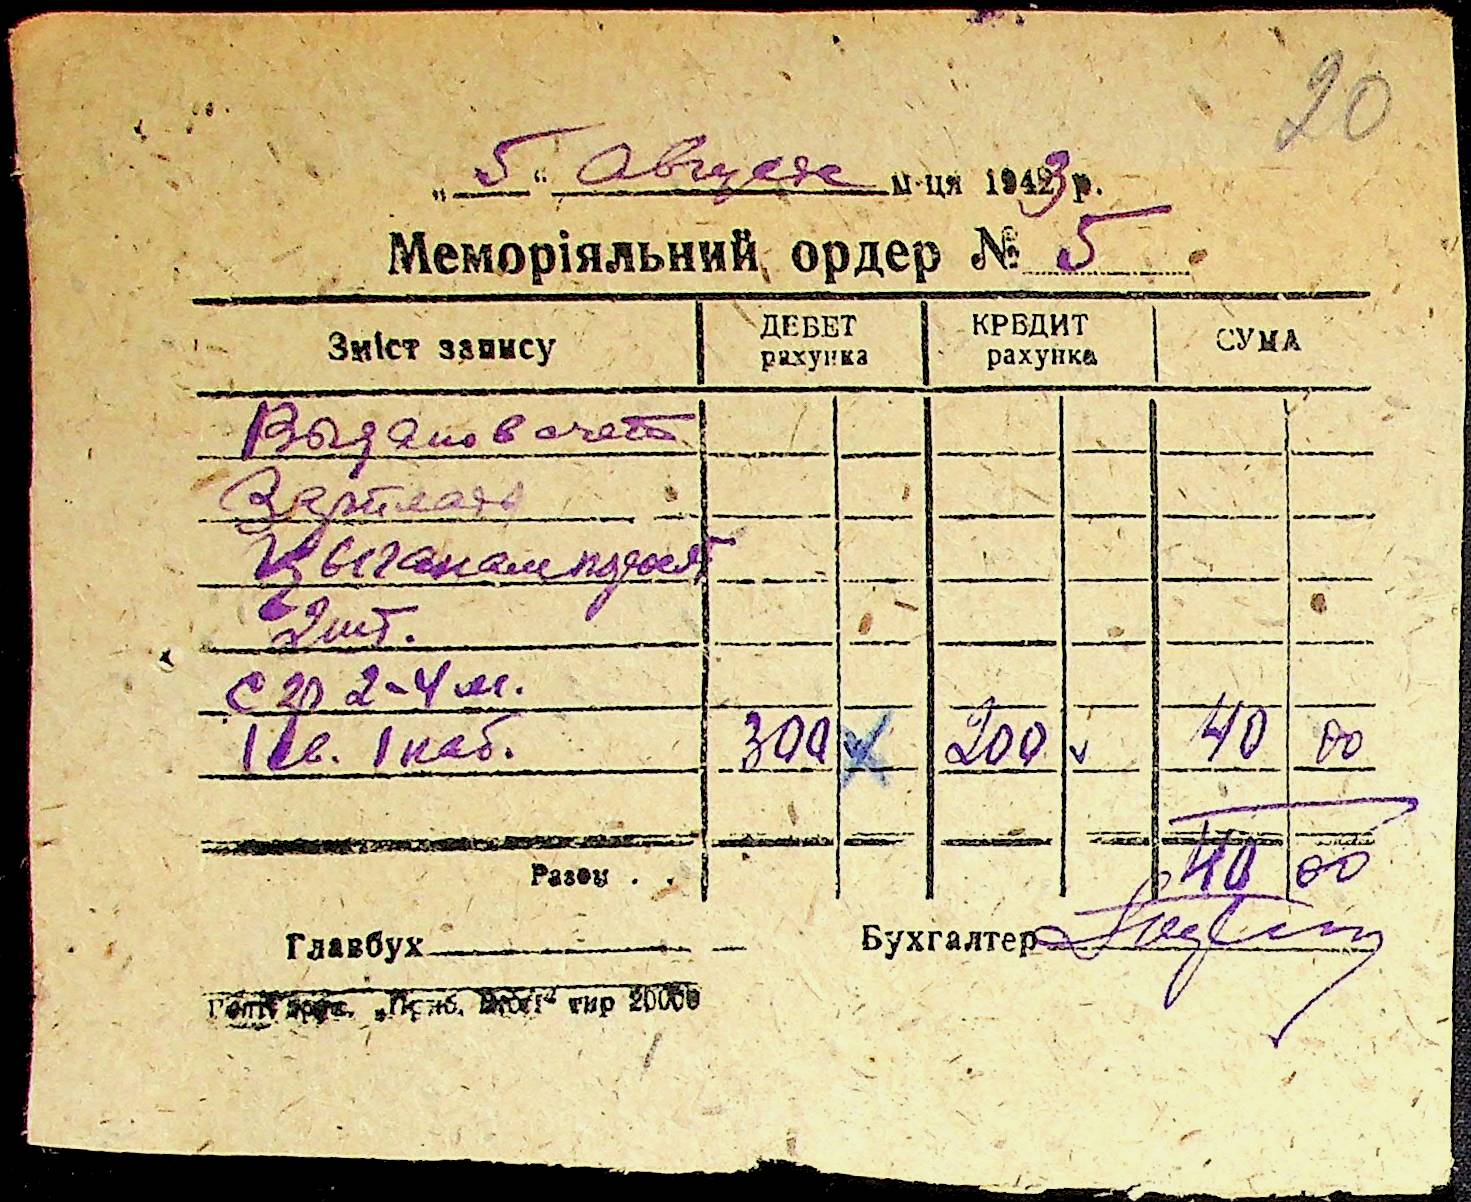 20
„5“ Августа м-ця 1943 р.
Меморіяльний ордер № 5
Зміст запису ДЕБЕТ рахунка КРЕДИТ рахунка СУМА
Выдано в счет
Зарплаты
Цыганам поросят
2 шт.
с гр 2-4 м.
1 св. 1 каб. 300 200 40 00
Разом . . 40 00
Главбух Бухгалтер
тир 20000